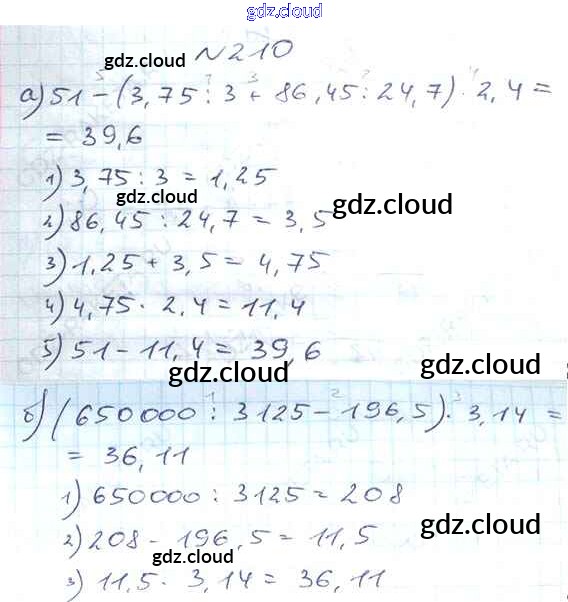 gdz.cloud
gdz.cloud №210
а) 51 - (3,75 : 3 + 86,45 : 24,7) · 2,4 =
gdz.cloud gdz.cloud
= 39,6
1) 3,75 : 3 = 1,25
gdz.cloud gdz.cloud
2) 86,45 : 24,7 = 3,5
3) 1,25 + 3,5 = 4,75
4) 4,75 · 2,4 = 11,4
5) 51 - 11,4 = 39,6
gdz.cloud gdz.cloud
б) (650000 : 3125 - 196,5) · 3,14 =
gdz.cloud gdz.cloud
= 36,11
1) 650000 : 3125 = 208
gdz.cloud
2) 208 - 196,5 = 11,5
gdz.cloud
3) 11,5 · 3,14 = 36,11